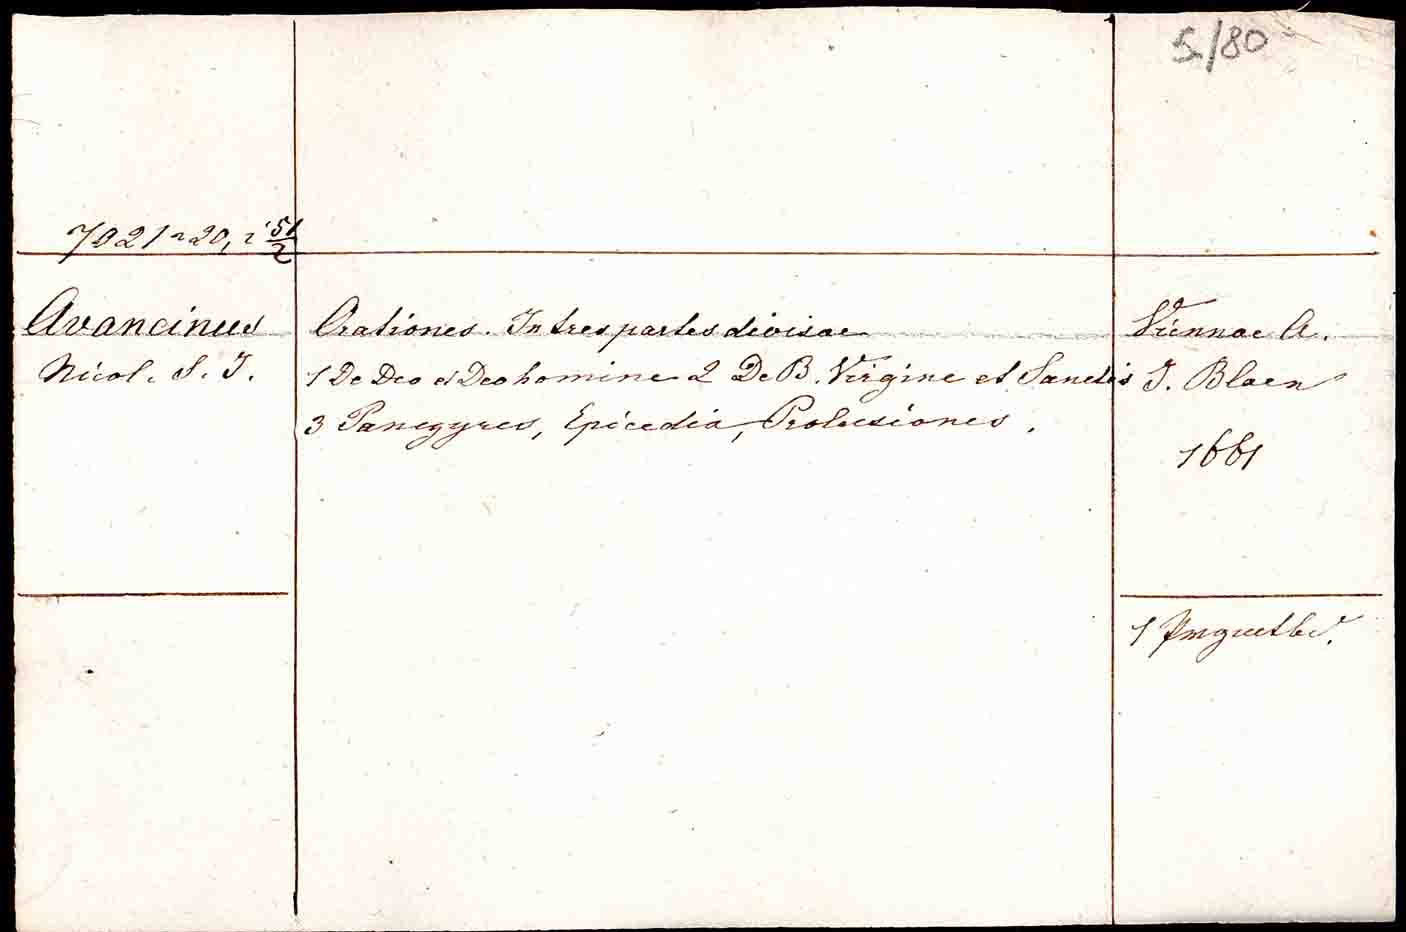 5/80
7021
Avancinus
Nicol. S. J.
Orationes. In tres partes divisae
1 De Deo et Deo homine 2 De B. Virgine et Sanctis
3 Panegyres, Epicedia, Prolusiones.
Viennae A.
J. Blaeu
1661